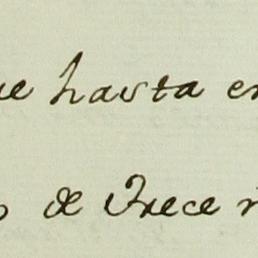 ue hasta en
de Trece